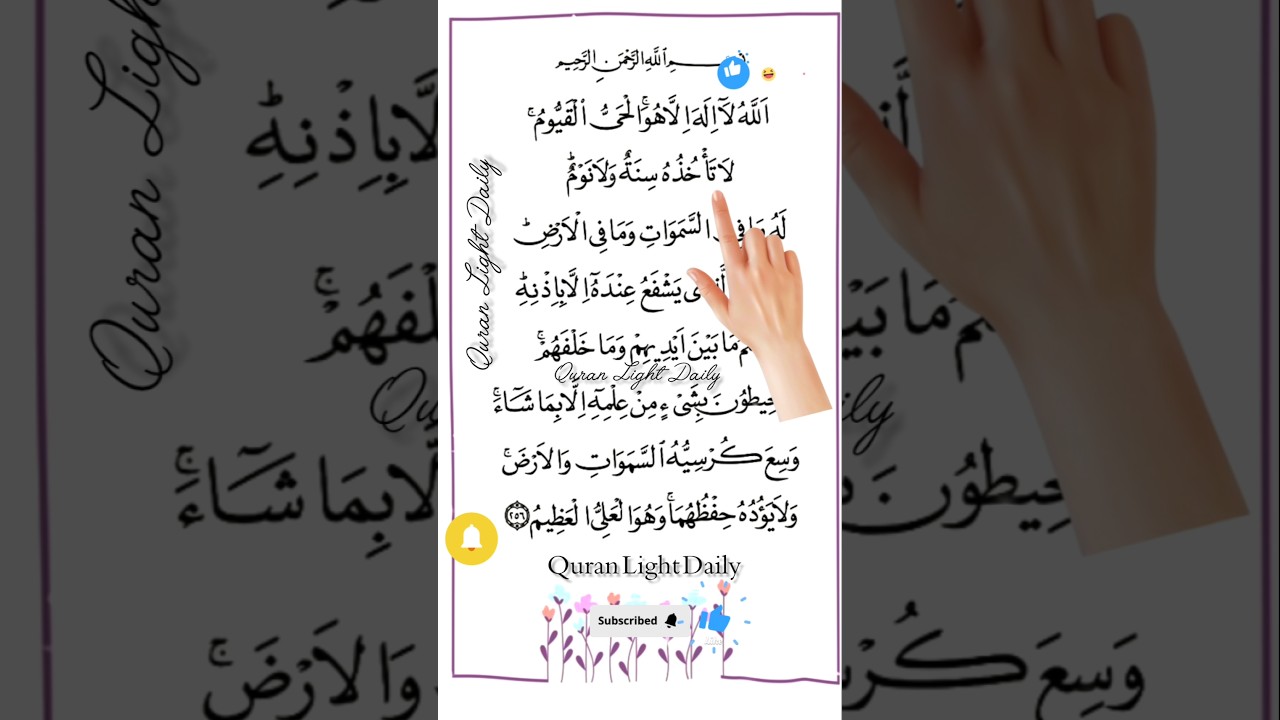 بِسْمِ ٱللَّهِ ٱلرَّحْمَٰنِ ٱلرَّحِيمِ
اَللَّهُ لَآ اِلَهَ اِلَّا هُوَ ۚ الْحَىُّ الْقَيُّومُ ۚ
لَا تَأْخُذُهُ سِنَةٌ وَلَا نَوْمٌ ؕ
لَهُ مَا فِى السَّمَوَاتِ وَمَا فِى الْاَرْضِ ؕ
يَشْفَعُ عِنْدَهُٓ اِلَّا بِاِذْنِهِ ؕ
مَا بَيْنَ اَيْدِيهِمْ وَمَا خَلْفَهُمْ ۚ
بِشَىْءٍ مِنْ عِلْمِهِٓ اِلَّا بِمَا شَٓاءَ ۚ
وَسِعَ كُرْسِيُّهُ السَّمَوَاتِ وَالْاَرْضَ ۚ
وَلَا يَؤُدُهُ حِفْظُهُمَا ۚ وَهُوَ الْعَلِىُّ الْعَظِيمُ ﴿٢٥٥﴾
Quran Light Daily
Quran Light Daily
Quran Light Daily
Subscribed